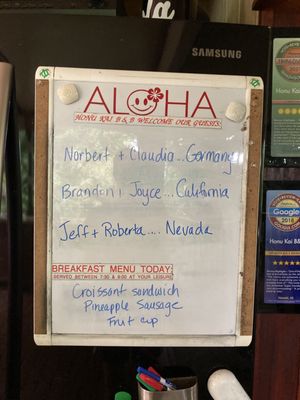 SAMSUNG
ALOHA
HONU KAI B & B WELCOME OUR GUESTS
Norbert + Claudia... Germany
Brandon + Joyce... California
Jeff + Roberta.... Nevada
BREAKFAST MENU TODAY:
SERVED BETWEEN 7:30 & 9:00 AT YOUR LEISURE
Croissant sandwich
Pineapple Sausage
Fruit cup
Honu Kai
Google
2018
Honu Kai B&B